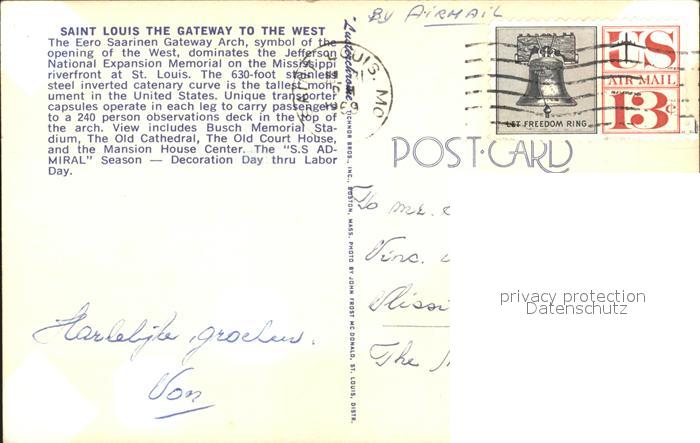 SAINT LOUIS THE GATEWAY TO THE WEST
The Eero Saarinen Gateway Arch, symbol of the
opening of the West, dominates the Jefferson
National Expansion Memorial on the Mississippi
riverfront at St. Louis. The 630-foot stainless
steel inverted catenary curve is the tallest mon-
ument in the United States. Unique transporter
capsules operate in each leg to carry passengers
to a 240 person observations deck in the top of
the arch. View includes Busch Memorial Sta-
dium, The Old Cathedral, The Old Court House,
and the Mansion House Center. The "S.S AD-
MIRAL" Season — Decoration Day thru Labor
Day.
Hartelijke groeten.
Von
"Lustrochrome"
TICHNOR BROS. INC., BOSTON, MASS. PHOTO BY JOHN FROST MC DONALD, ST. LOUIS, DISTR.
BY AIRMAIL
LOUIS, MO
1969
LET FREEDOM RING
US
AIR MAIL
13¢
POST-CARD
To Mr.
Vinc.
Vlissi
The
privacy protection
Datenschutz